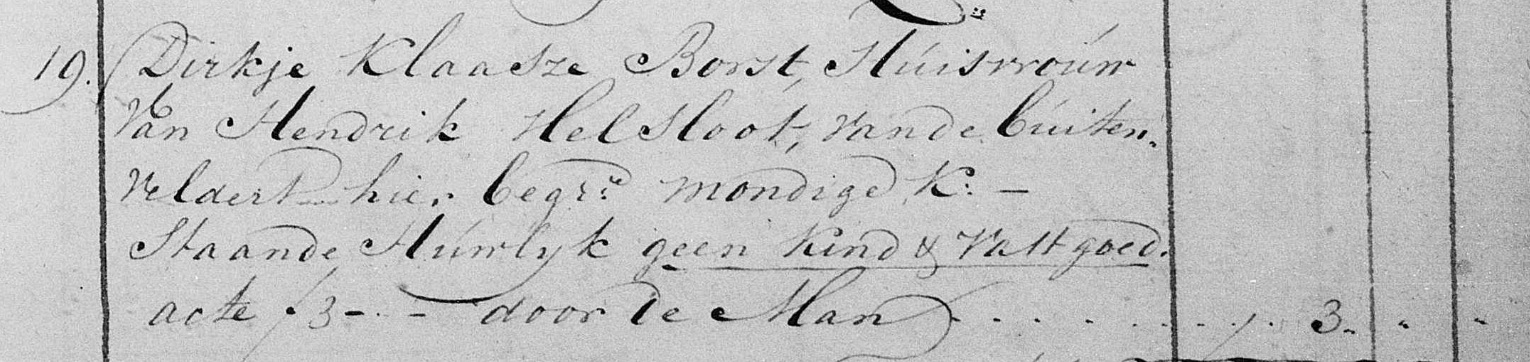 19. Dirkje Klaasze Borst, Húisvroúw
van Hendrik Helsloot, vande búiten.
veldert hier begr: mondige K: —
Staande Húwlyk geen Kind & vastgoed.
acte f 3 - - door de Man . . . . . . . f . 3. . .